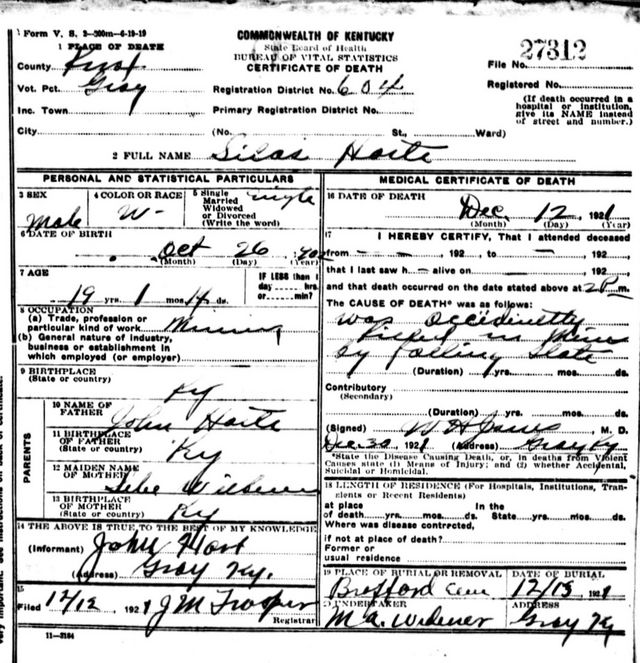 Form V. S. 2—300m—6-19-19
COMMONWEALTH OF KENTUCKY
State Board of Health
BUREAU OF VITAL STATISTICS
CERTIFICATE OF DEATH
File No. 27312
Registered No.
(If death occurred in a
hospital or institution,
give its NAME instead
of street and number.)
1 PLACE OF DEATH
County Knox
Vot. Pct. Gray
Inc. Town
City
Registration District No. 604
Primary Registration District No.
(No. St., Ward)
2 FULL NAME Silas
PERSONAL AND STATISTICAL PARTICULARS
3 SEX
Male
4 COLOR OR RACE
W-
5 Single
Married
Widowed
or Divorced
(Write the word)
single
6 DATE OF BIRTH
Oct 26
(Month) (Day) (Year)
7 AGE
19 yrs. 1 mos. ds.
IF LESS than 1
day hrs.
or min?
8 OCCUPATION
(a) Trade, profession or
particular kind of work Mining
(b) General nature of industry,
business or establishment in
which employed (or employer)
9 BIRTHPLACE
(State or country)
Ky
PARENTS
10 NAME OF
FATHER
John
11 BIRTHPLACE
OF FATHER
(State or country)
Ky
12 MAIDEN NAME
OF MOTHER
13 BIRTHPLACE
OF MOTHER
(State or country)
Ky
14 THE ABOVE IS TRUE TO THE BEST OF MY KNOWLEDGE
(Informant) John
(Address) Gray Ky.
15
Filed 12/12 1921 J M
Registrar
11—3184
MEDICAL CERTIFICATE OF DEATH
16 DATE OF DEATH
Dec. 12 1921
(Month) (Day) (Year)
17
I HEREBY CERTIFY, That I attended deceased
from — , 192 to — , 192
that I last saw h — alive on , 192
and that death occurred on the date stated above at 2 P m.
The CAUSE OF DEATH* was as follows:
was
killed in mine
by falling slate
(Duration) yrs. mos. ds.
Contributory
(Secondary)
(Duration) yrs. mos. ds.
(Signed) W H Jones, M. D.
Dec 30, 1921 (Address) Gray Ky
*State the Disease Causing Death, or, in deaths from Violent
Causes state (1) Means of Injury; and (2) whether Accidental,
Suicidal or Homicidal.
18 LENGTH OF RESIDENCE (For Hospitals, Institutions, Tran-
sients or Recent Residents)
at place In the
of death yrs. mos. ds. State yrs. mos. ds.
Where was disease contrected,
if not at place of death?
Former or
usual residence
19 PLACE OF BURIAL OR REMOVAL
DATE OF BURIAL
12/13 1921
UNDERTAKER
M. A.
ADDRESS
Gray Ky